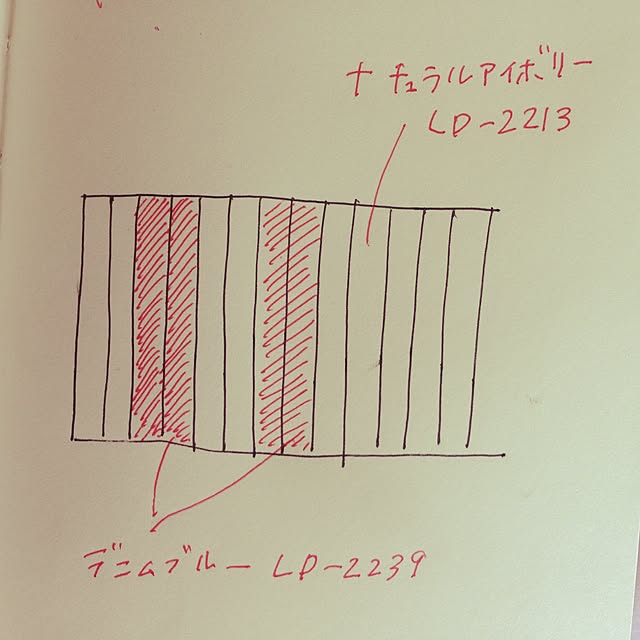 ナチュラルアイボリー
LD-2213
デニムブルー LD-2239